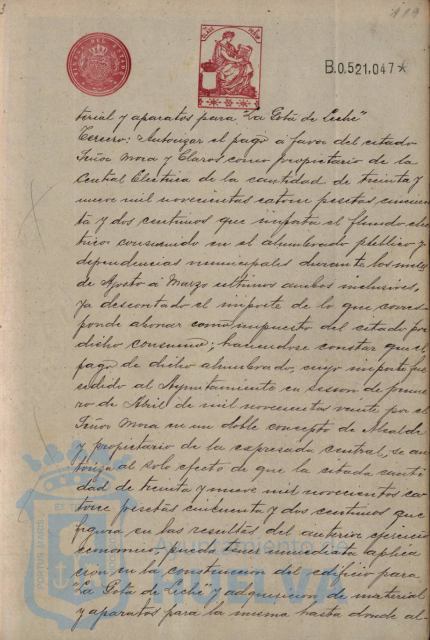 119
B.0.521,047*
terial y aparatos para "La Gota de Leche"
Tercero: Autorizar el pago á favor del citado
Señor Mora y Claros como propietario de la
Central Electrica de la cantidad de treinta y
nueve mil novecientas catorce pesetas cincuen
ta y dos centimos que importa el fluido elec
trico consumido en el alumbrado público y
dependencias municipales durante los meses
de Agosto á Marzo ultimos ambos inclusives,
ya descontado el importe de lo que corres
ponde abonar como impuesto del citado por
dicho consumo; haciendose constar que el
pago de dicho alumbrado, cuyo importe fué
cedido al Ayuntamiento en sesion de prime
ro de Abril de mil novecientos veinte por el
Señor Mora en un doble concepto de Alcalde
y propietario de la expresada central, se au
toriza al solo efecto de que la citada canti
dad de treinta y nueve mil novecientas ca
torce pesetas cincuenta y dos centimos que
figura en las resultas del anterior ejercicio
economico pueda tener inmediata aplica
cion en la construccion del edificio para
"La Gota de Leche" y adquisicion de material
y aparatos para la misma hasta donde al-
Ayuntamiento de
HUELVA
PORTUS MARIS